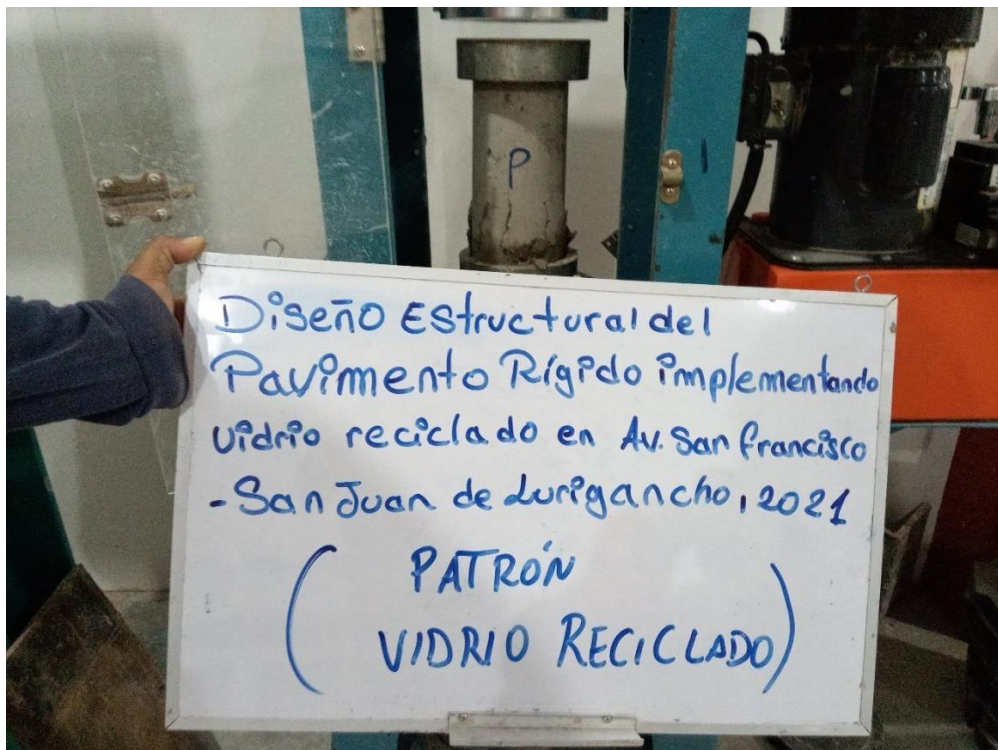 P
Diseño Estructural del
Pavimento Rígido implementando
vidrio reciclado en Av. San francisco
- San Juan de Lurigancho, 2021
( PATRÓN
VIDRIO RECICLADO)